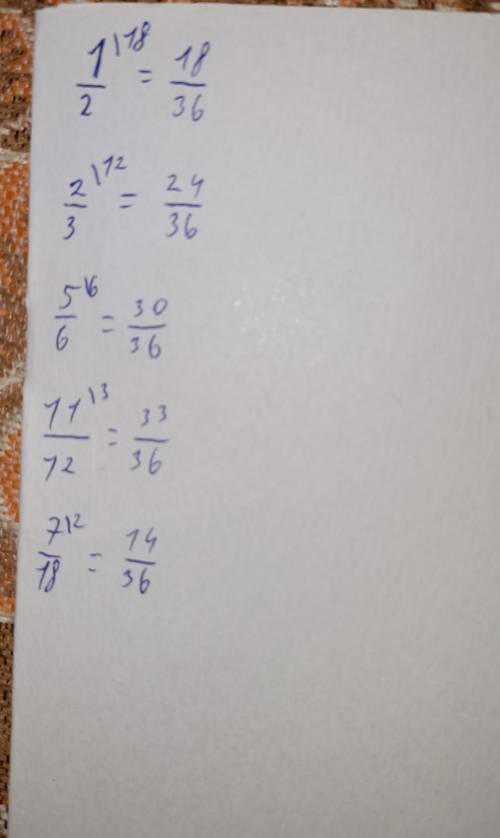 1\18 / 2 = 18 / 36
2\12 / 3 = 24 / 36
5\6 / 6 = 30 / 36
11\3 / 12 = 33 / 36
7\2 / 18 = 14 / 36